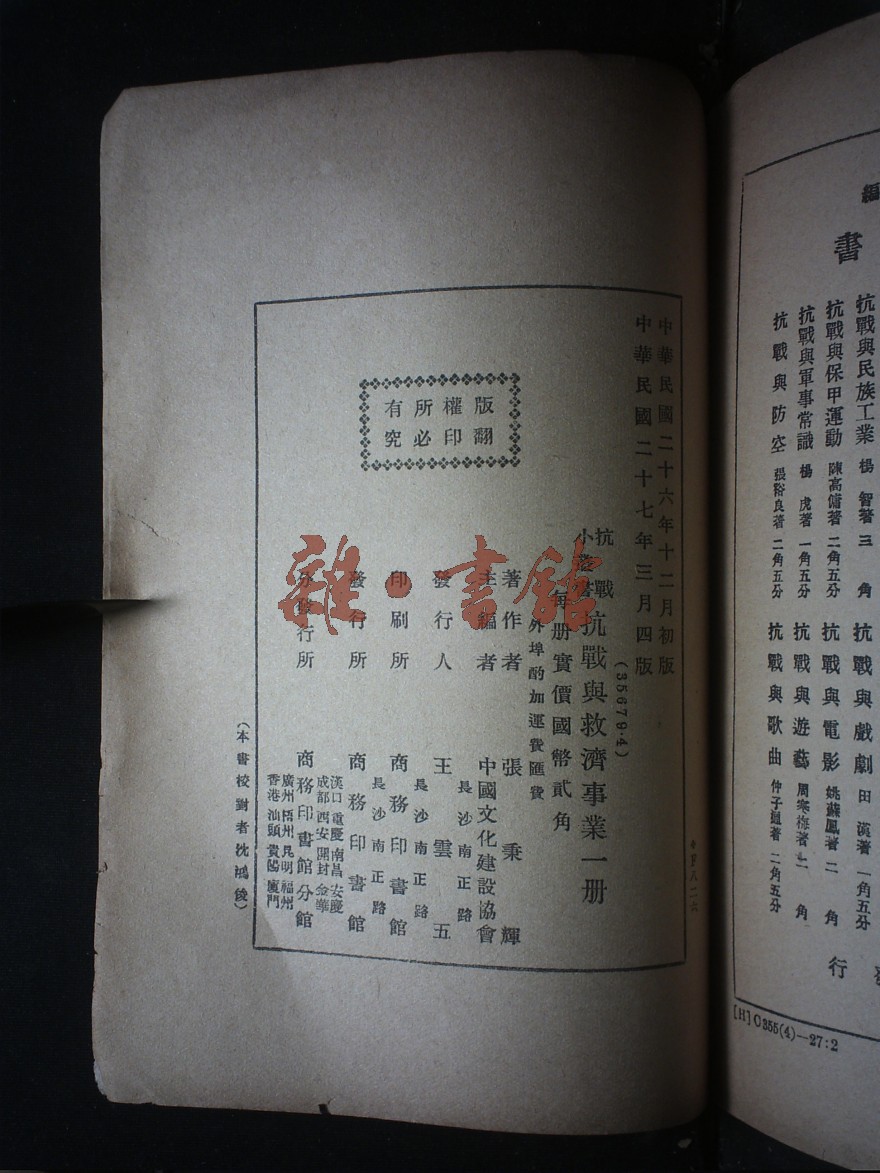 編
書
抗戰與民族工業 楊智著 三角
抗戰與保甲運動 陳高傭著 二角五分
抗戰與軍事常識 楊虎著 一角五分
抗戰與防空 張裕良著 二角五分
抗戰與戲劇 田漢著 一角五分
抗戰與電影 姚蘇鳳著 二角
抗戰與遊藝 周寒梅著 二角
抗戰與歌曲 仲子通著 二角五分
行
[H]C355(4)—27:2
中華民國二十六年十二月初版
中華民國二十七年三月四版
(35679·4)
抗戰小叢書 抗戰與救濟事業一册
每册實價國幣貳角
外埠酌加運費匯費
著作者 張秉輝
主編者 中國文化建設協會
長沙南正路
發行人 王雲五
長沙南正路
印刷所 商務印書館
發行所 商務印書館
漢口重慶南昌安慶
成都西安開封金華
分發行所 商務印書館分館
廣州梧州昆明福州
香港汕頭貴陽廈門
版權所有
翻印必究
(本書校對者沈鴻俊)
雜·書館